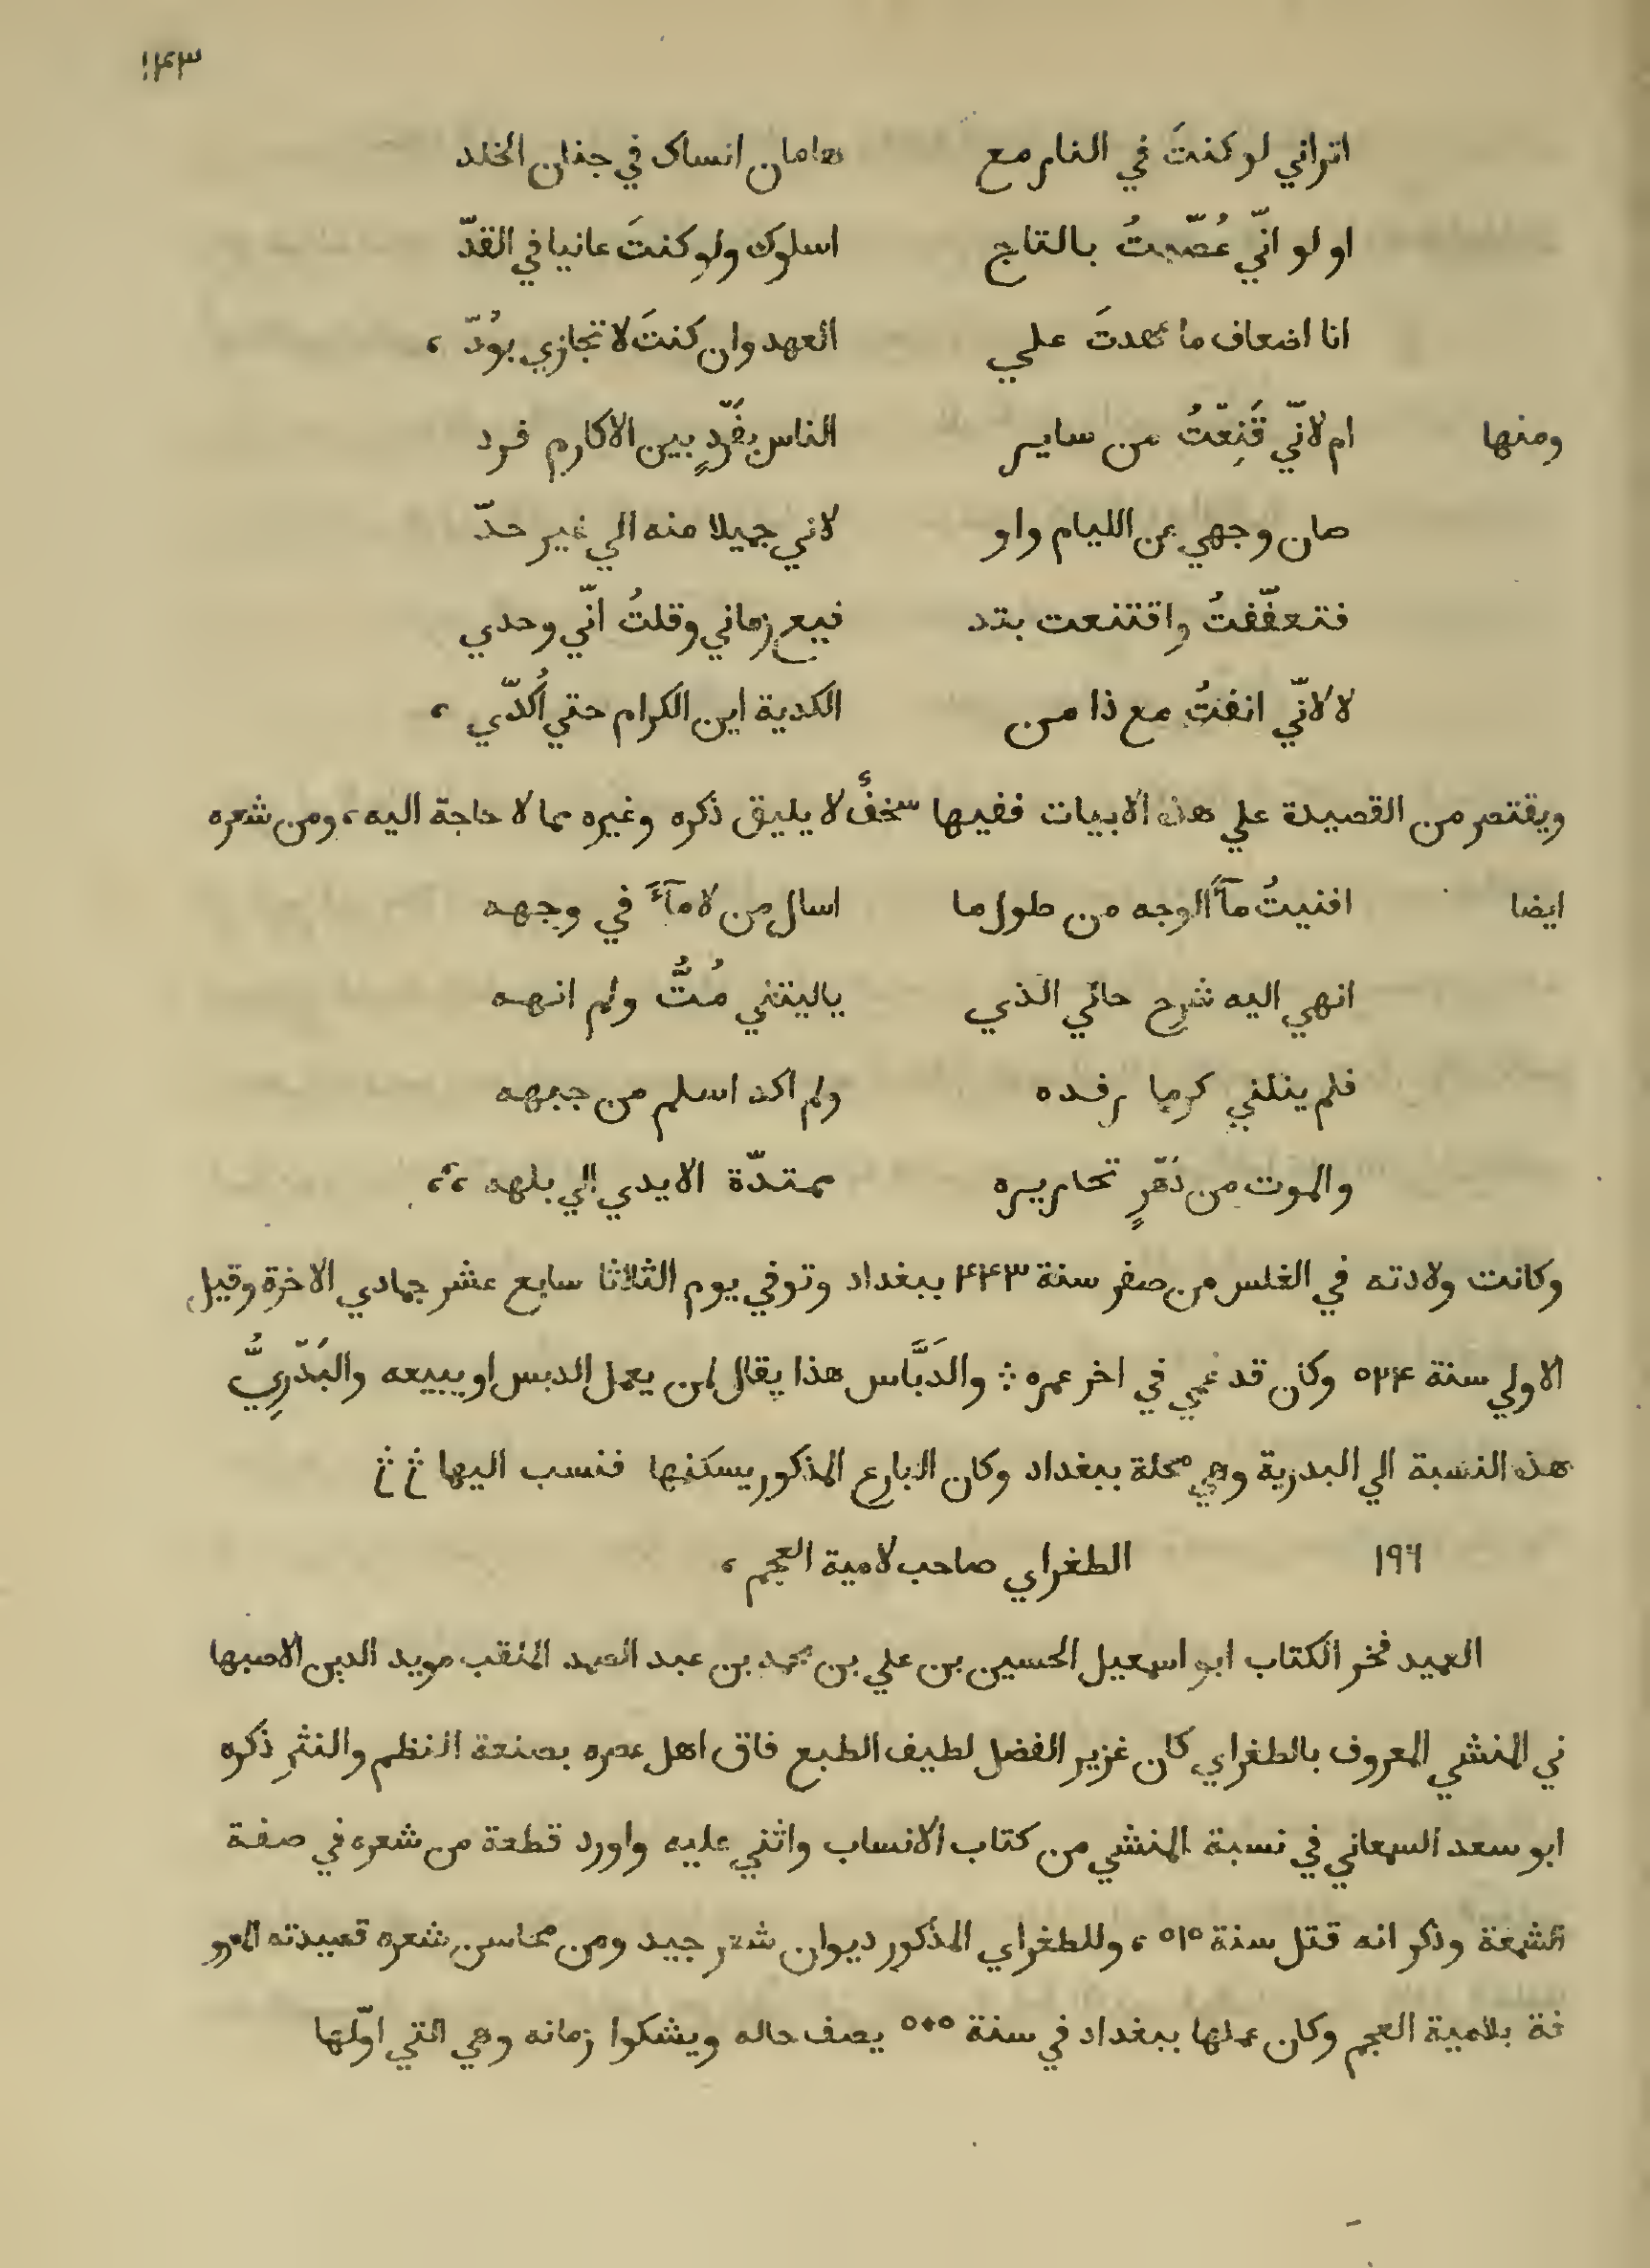 ١٤٣
اتراني لو كنتَ في النار مع هامان انساك في جنان الخلد
او لو انّي عُصّبتُ بالتاج اسلوك ولو كنتَ عانيا في القدّ
انا اضعاف ما عهدتَ علي العهد وان كنتَ لا تجازي بوُدّ ،
ومنها ام لانّي قَنِعّتُ من ساير الناس بفَرّدٍ بين الاكارم فرد
صان وجهي عن الليام واو لاني جميلا منه الي غير حدّ
فتعفّفتُ واقتنعت بتد فيع زماني وقلتُ انّي وحدي
لا لانّي انفتُ مع ذا من الكدية اين الكرام حتي أُكدّي ،
ويقتصر من القصيدة علي هذه الابيات ففيها سخفٌ لا يليق ذكره وغيره مما لا حاجة اليه ، ومن شعره
ايضا افنيتُ مآَ الوجه من طول ما اسال من لا مآءَ في وجهه
انهي اليه شرح حالي الذي ياليتني مُتُّ ولم انهه
فلم ينلني كرما رفده ولم اكد اسلم من جبهه
والموت من دَهّرٍ نحاريره ممتدّة الايدي الي بلهه ،،
وكانت ولادته في الغلس من صفر سنة ٤٤٣ ببغداد وتوفي يوم الثلاثا سابع عشر جمادي الاخرة وقيل
الاولي سنة ٥٢٤ وكان قد عمي في اخر عمره : والدَبَّاس هذا يقال لمن يعمل الدبس او يبيعه والبَدّرِيُّ
هذه النسبة الي البدرية وهي محلة ببغداد وكان البارع المذكور يسكنها فنسب اليها
١٩٦ الطغراي صاحب لامية العجم ،
العميد فخر الكتاب ابو اسمعيل الحسين بن علي بن محمد بن عبد الصمد الملقب مويد الدين الاصبها
ني المنشي المعروف بالطغراي كان غزير الفضل لطيف الطبع فاق اهل عصره بصنعة النظم والنثر ذكره
ابو سعد السمعاني في نسبة المنشي من كتاب الانساب واثني عليه واورد قطعة من شعره في صفة
الشمعة وذكر انه قتل سنة ٥١٥ ، وللطغراي المذكور ديوان شعر جيد ومن محاسن شعره قصيدته المعرو
فة بلامية العجم وكان عملها ببغداد في سنة ٥٠٥ يصف حاله ويشكوا زمانه وهي التي اوّلها